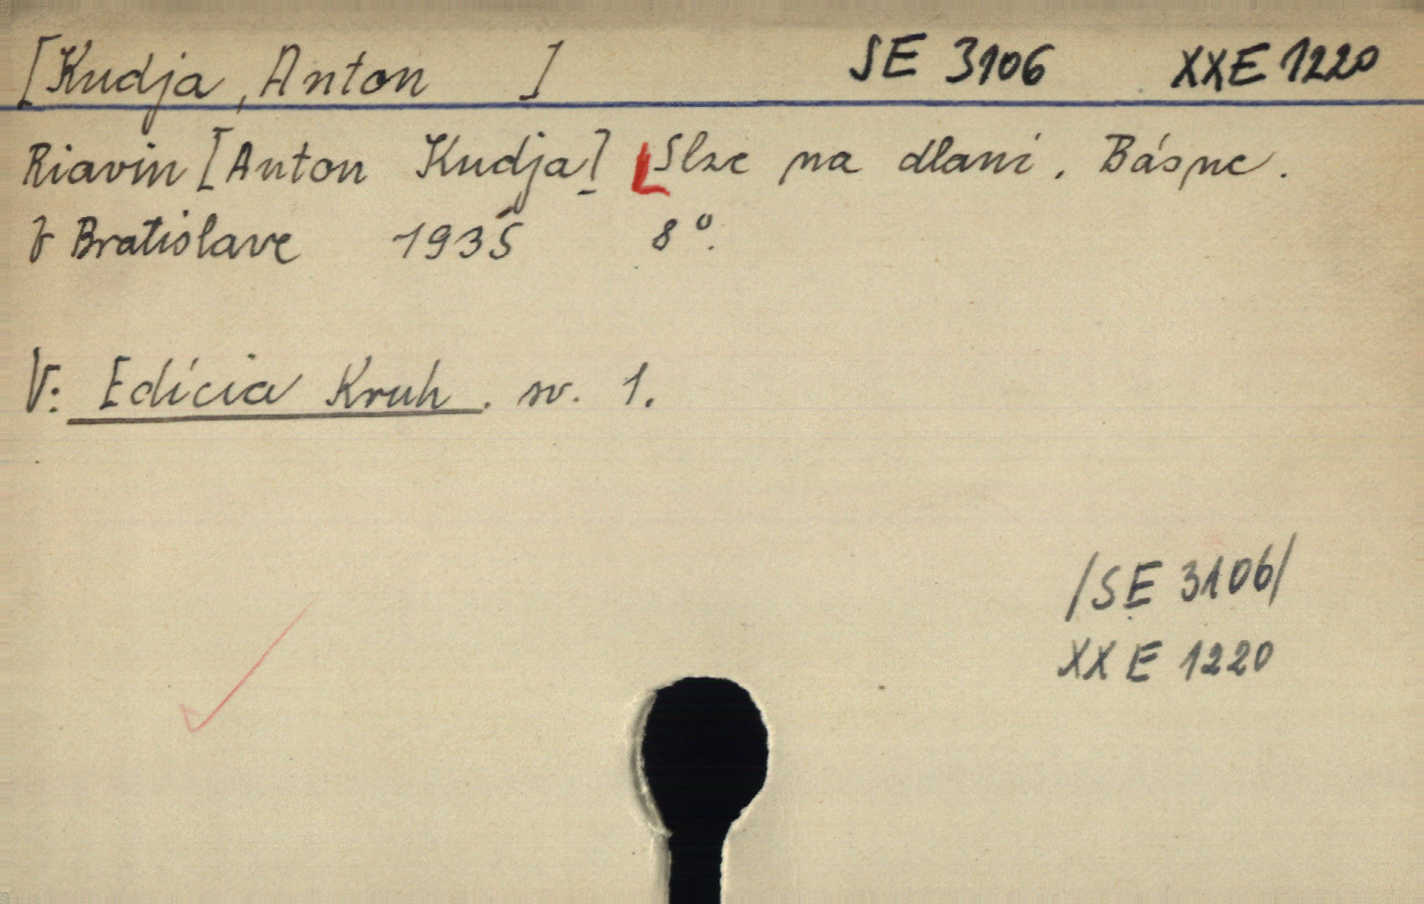 [Kudja, Anton ] SE 3106 XXE 1220
Riavin [Anton Kudja] Slze na dlani. Básne.
V Bratislave 1935 8°.
V: Edícia Kruh. sv. 1.
/SE 3106/
XX E 1220